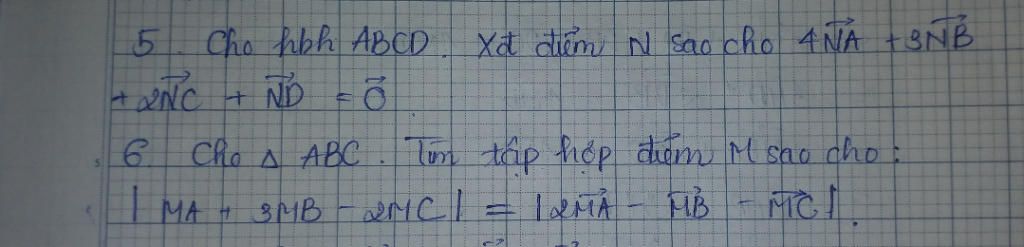 5. Cho hbh ABCD. Xđ điểm N sao cho 4\overrightarrow{NA} + 3\overrightarrow{NB}
+ 2\overrightarrow{NC} + \overrightarrow{ND} = \vec{0}
6. Cho Δ ABC. Tìm tập hợp điểm M sao cho:
|MA + 3MB - 2MC| = |2\overrightarrow{MA} - \overrightarrow{MB} - \overrightarrow{MC}|.